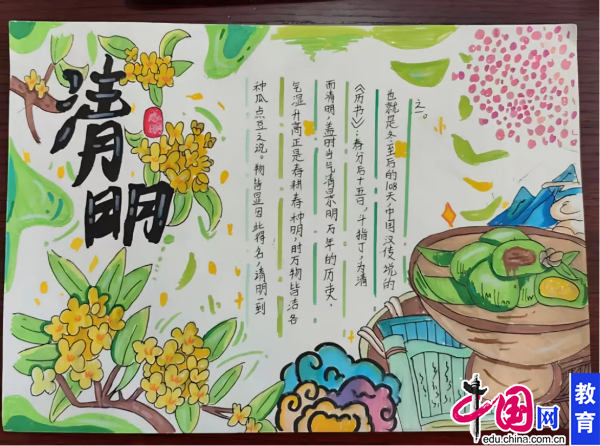 清明
之一。
也就是冬至后的108天,中国汉传统的
《历书》:春分后十五日,斗指丁,为清
而清明,盖时当气清景明,万年的历史,
气温升高正是春耕春种明,时万物皆洁各
种瓜点豆之说。物皆显因此得名,清明一到
中国网
edu.china.com.cn
教育